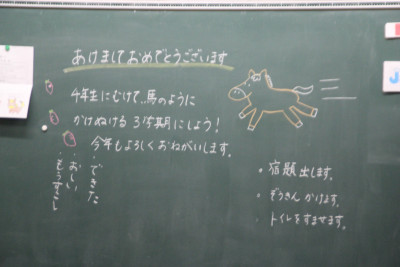 あけましておめでとうございます
4年生にむけて、馬のように
かけぬける 3学期にしよう!
今年もよろしくおねがいします。
・できた
・おしい
・もうすこし
・宿題出します。
・ぞうきんかけます。
・トイレをすませます。